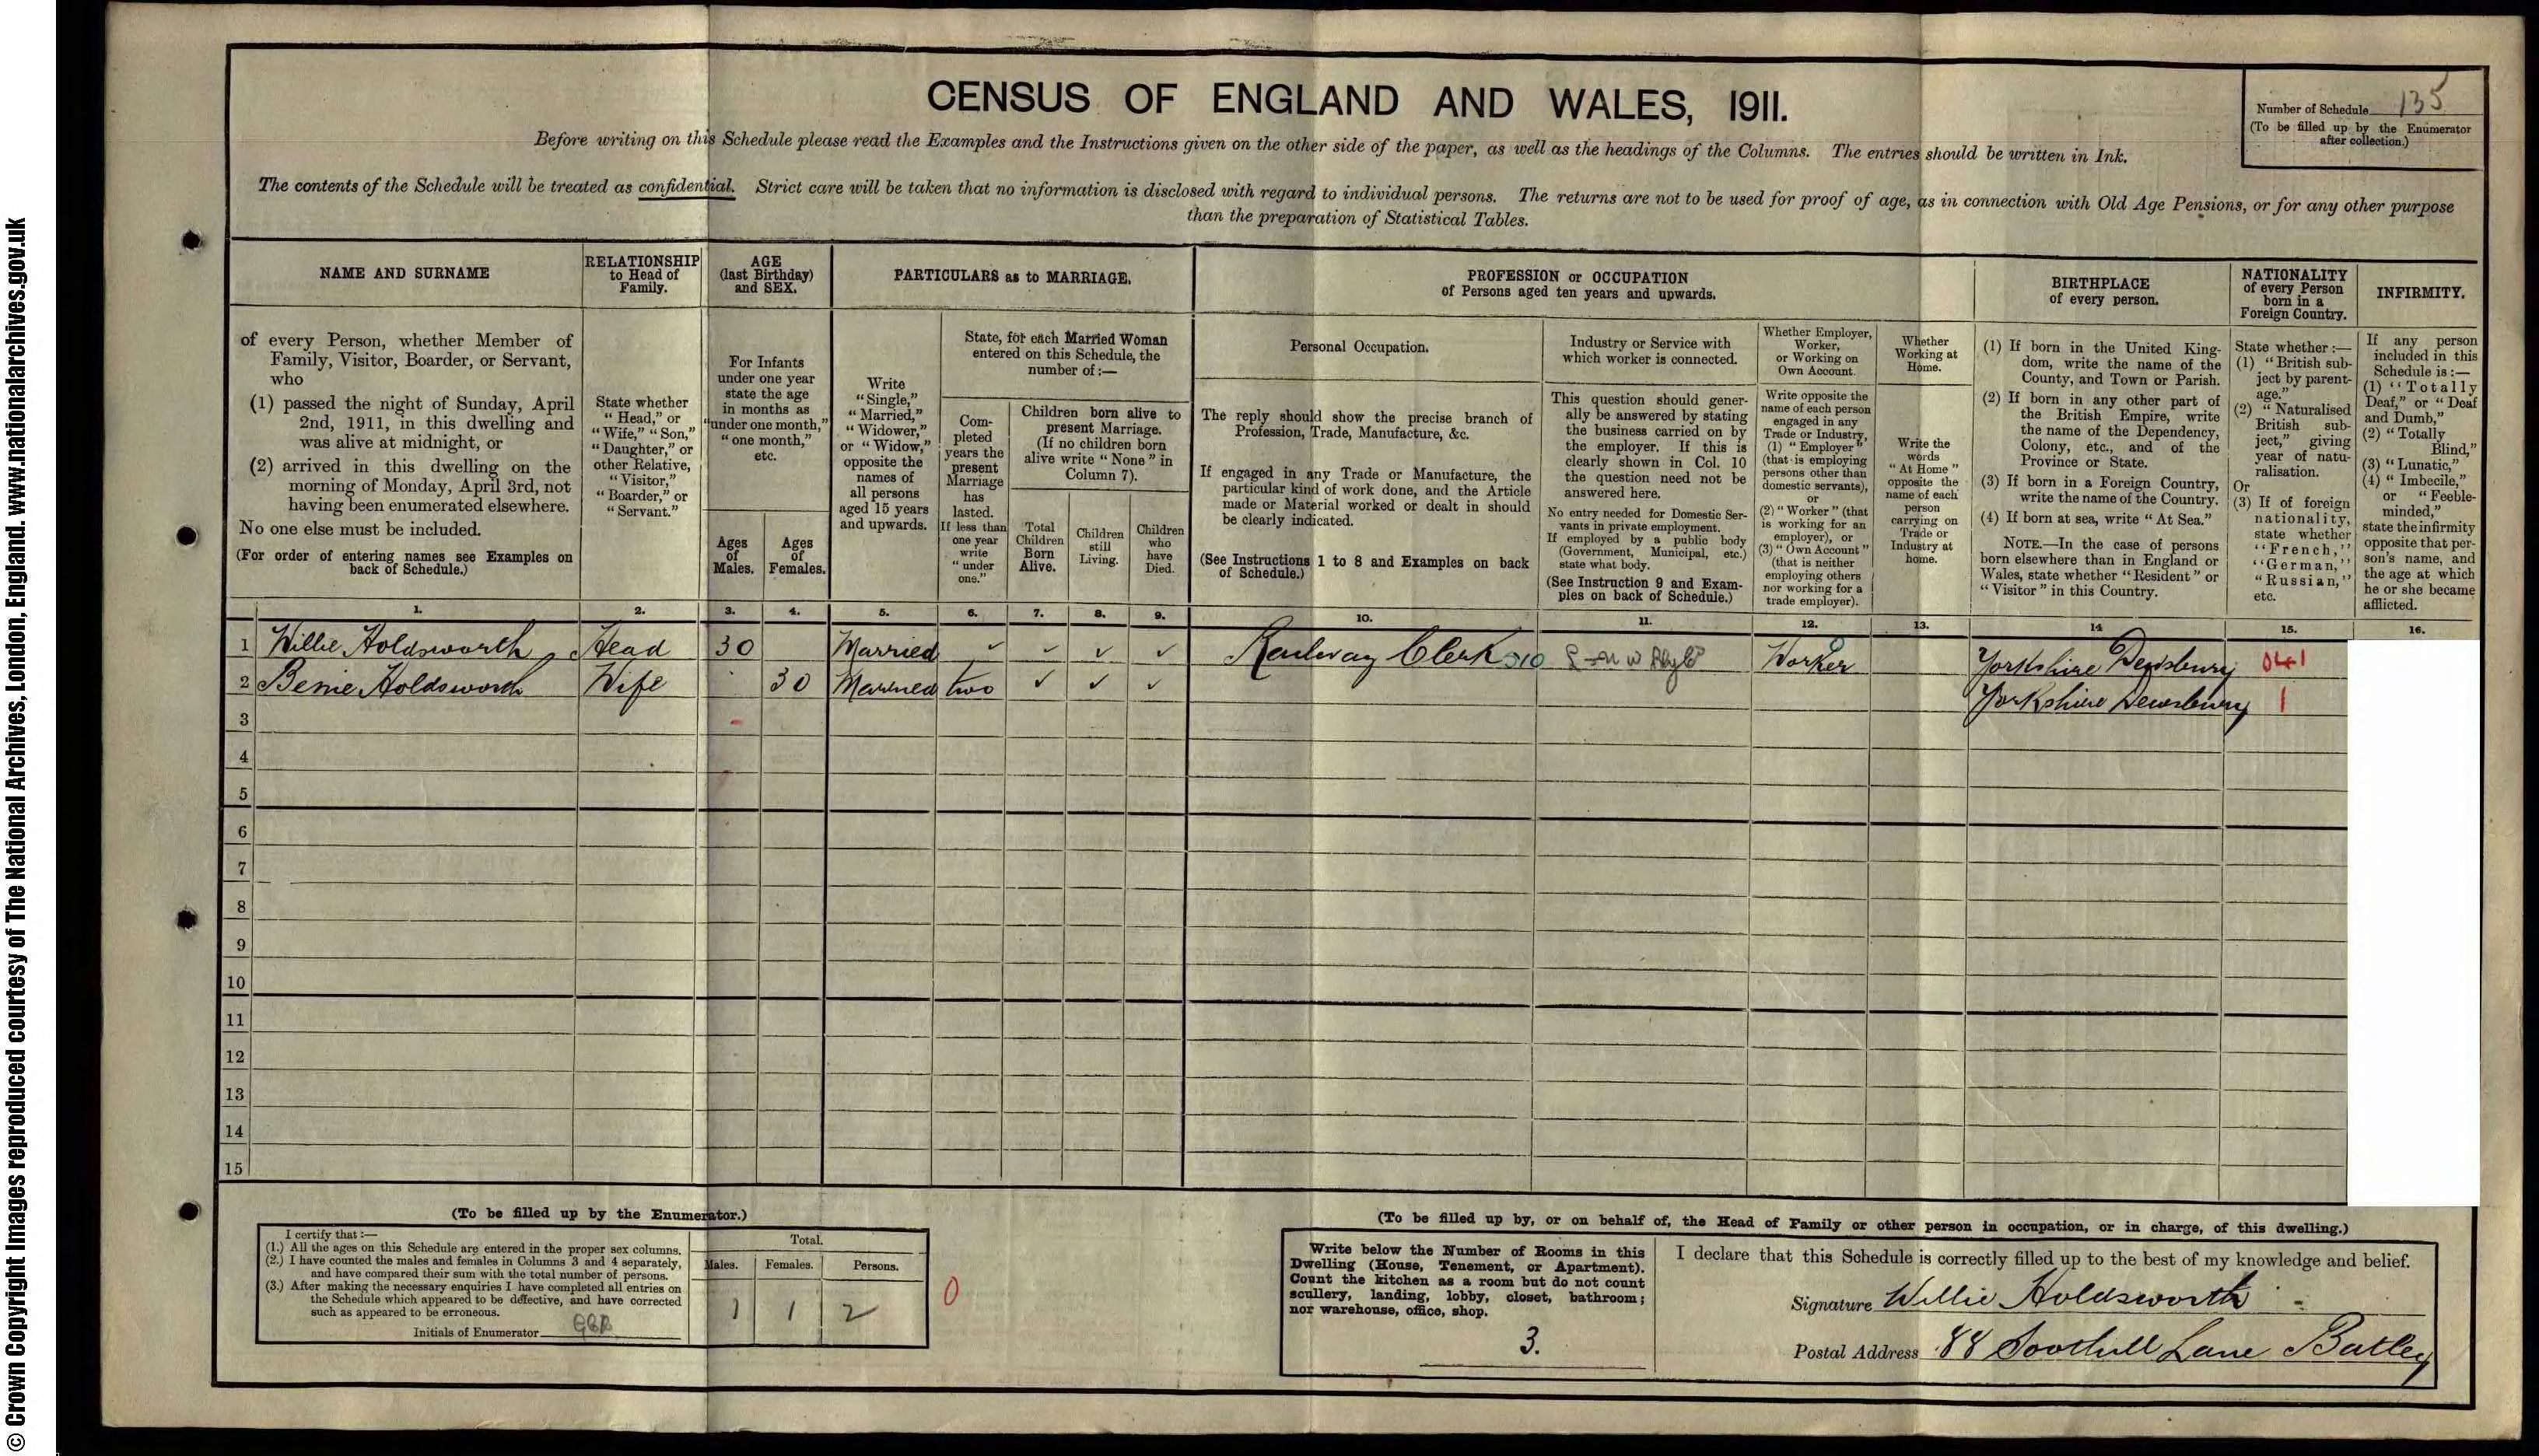 © Crown Copyright Images reproduced courtesy of The National Archives, London, England. www.nationalarchives.gov.uk
CENSUS OF ENGLAND AND WALES, 1911.
Number of Schedule 135
(To be filled up by the Enumerator
after collection.)
Before writing on this Schedule please read the Examples and the Instructions given on the other side of the paper, as well as the headings of the Columns. The entries should be written in Ink.
The contents of the Schedule will be treated as confidential. Strict care will be taken that no information is disclosed with regard to individual persons. The returns are not to be used for proof of age, as in connection with Old Age Pensions, or for any other purpose
than the preparation of Statistical Tables.
NAME AND SURNAME
of every Person, whether Member of
Family, Visitor, Boarder, or Servant,
who
(1) passed the night of Sunday, April
2nd, 1911, in this dwelling and
was alive at midnight, or
(2) arrived in this dwelling on the
morning of Monday, April 3rd, not
having been enumerated elsewhere.
No one else must be included.
(For order of entering names see Examples on
back of Schedule.)
RELATIONSHIP
to Head of
Family.
State whether
"Head," or
"Wife," "Son,"
"Daughter," or
other Relative,
"Visitor,"
"Boarder," or
"Servant."
AGE
(last Birthday)
and SEX.
For Infants
under one year
state the age
in months as
"under one month,"
"one month,"
etc.
Ages
of
Males.
Ages
of
Females.
PARTICULARS as to MARRIAGE.
Write
"Single,"
"Married,"
"Widower,"
or "Widow,"
opposite the
names of
all persons
aged 15 years
and upwards.
State, for each Married Woman
entered on this Schedule, the
number of:—
Com-
pleted
years the
present
Marriage
has
lasted.
If less than
one year
write
"under
one."
Children born alive to
present Marriage.
(If no children born
alive write "None" in
Column 7).
Total
Children
Born
Alive.
Children
still
Living.
Children
who
have
Died.
PROFESSION or OCCUPATION
of Persons aged ten years and upwards.
Personal Occupation.
The reply should show the precise branch of
Profession, Trade, Manufacture, &c.
If engaged in any Trade or Manufacture, the
particular kind of work done, and the Article
made or Material worked or dealt in should
be clearly indicated.
(See Instructions 1 to 8 and Examples on back
of Schedule.)
Industry or Service with
which worker is connected.
This question should gener-
ally be answered by stating
the business carried on by
the employer. If this is
clearly shown in Col. 10
the question need not be
answered here.
No entry needed for Domestic Ser-
vants in private employment.
If employed by a public body
(Government, Municipal, etc.)
state what body.
(See Instruction 9 and Exam-
ples on back of Schedule.)
Whether Employer,
Worker,
or Working on
Own Account.
Write opposite the
name of each person
engaged in any
Trade or Industry,
(1) "Employer"
(that is employing
persons other than
domestic servants),
or
(2) "Worker" (that
is working for an
employer), or
(3) "Own Account"
(that is neither
employing others
nor working for a
trade employer).
Whether
Working at
Home.
Write the
words
"At Home"
opposite the
name of each
person
carrying on
Trade or
Industry at
home.
BIRTHPLACE
of every person.
(1) If born in the United King-
dom, write the name of the
County, and Town or Parish.
(2) If born in any other part of
the British Empire, write
the name of the Dependency,
Colony, etc., and of the
Province or State.
(3) If born in a Foreign Country,
write the name of the Country.
(4) If born at sea, write "At Sea."
NOTE.—In the case of persons
born elsewhere than in England or
Wales, state whether "Resident" or
"Visitor" in this Country.
NATIONALITY
of every Person
born in a
Foreign Country.
State whether:—
(1) "British sub-
ject by parent-
age."
(2) "Naturalised
British sub-
ject," giving
year of natu-
ralisation.
Or
(3) If of foreign
nationality,
state whether
"French,"
"German,"
"Russian,"
etc.
INFIRMITY.
If any person
included in this
Schedule is:—
(1) "Totally
Deaf," or "Deaf
and Dumb,"
(2) "Totally
Blind,"
(3) "Lunatic,"
(4) "Imbecile,"
or "Feeble-
minded,"
state the infirmity
opposite that per-
son's name, and
the age at which
he or she became
afflicted.
1. 2. 3. 4. 5. 6. 7. 8. 9. 10. 11. 12. 13. 14 15. 16.
1 Willie Holdsworth Head 30 Married Railway Clerk 510 Worker Yorkshire Dewsbury 041
2 Bessie Holdsworth Wife 30 Married two Yorkshire Dewsbury 1
3
4
5
6
7
8
9
10
11
12
13
14
15
(To be filled up by the Enumerator.)
I certify that:—
(1.) All the ages on this Schedule are entered in the proper sex columns.
(2.) I have counted the males and females in Columns 3 and 4 separately,
and have compared their sum with the total number of persons.
(3.) After making the necessary enquiries I have completed all entries on
the Schedule which appeared to be defective, and have corrected
such as appeared to be erroneous.
Initials of Enumerator
Total.
Males. Females. Persons.
1 1 2
0
(To be filled up by, or on behalf of, the Head of Family or other person in occupation, or in charge, of this dwelling.)
Write below the Number of Rooms in this
Dwelling (House, Tenement, or Apartment).
Count the kitchen as a room but do not count
scullery, landing, lobby, closet, bathroom;
nor warehouse, office, shop.
3.
I declare that this Schedule is correctly filled up to the best of my knowledge and belief.
Signature Willie Holdsworth
Postal Address 88 Soothill Lane Batley